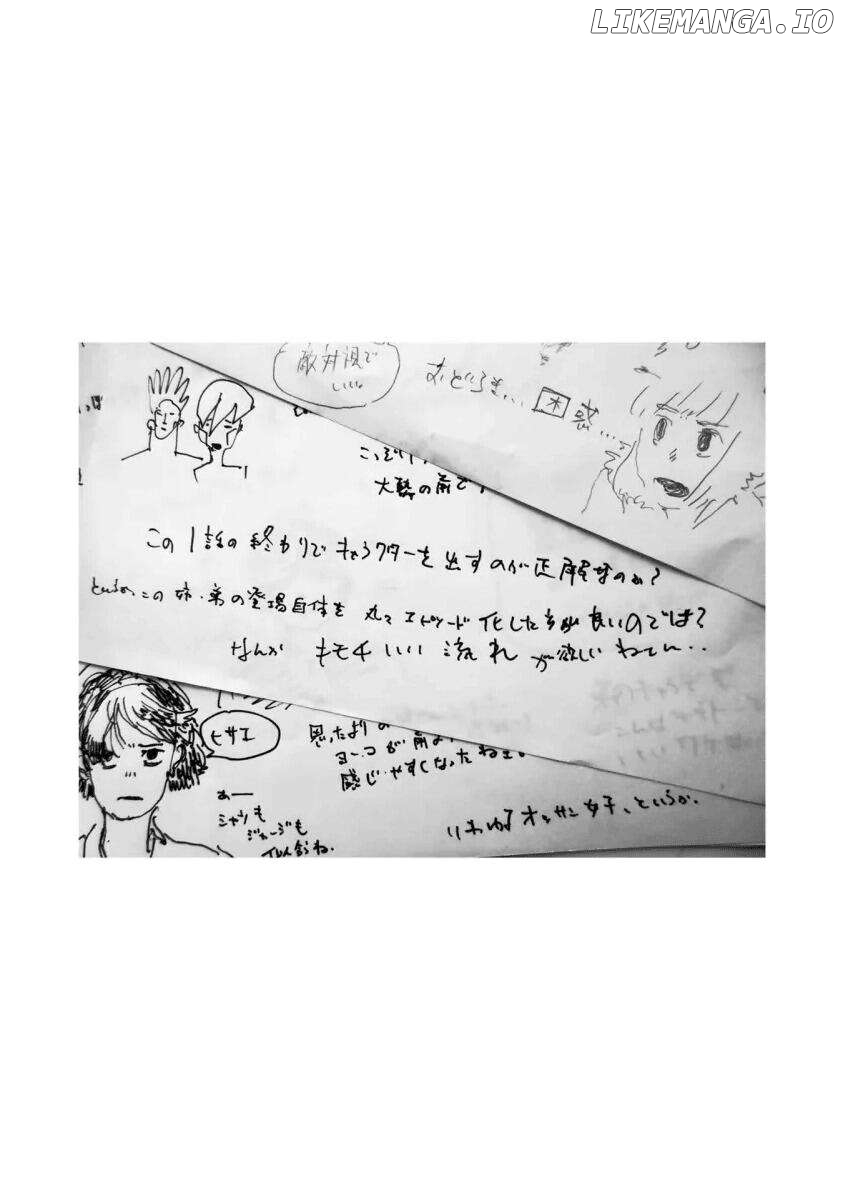 LIKEMANGA.IO
敵対視で
いい。
おどろき… 困惑…。
大勢の前で
この1話の終わりでキャラクターを出すのが正解なのか?
というか、この姉・弟の登場自体を 丸々エピソード化した方が良いのでは?
なんか キモチいい流れが欲しいねでん..
ヒサエ
思ったより
ヨーコが前
感じやすくなったねぇ。
あー
シャツも
ジャージも
似合うね、
いわゆるオッサン女子、というか、